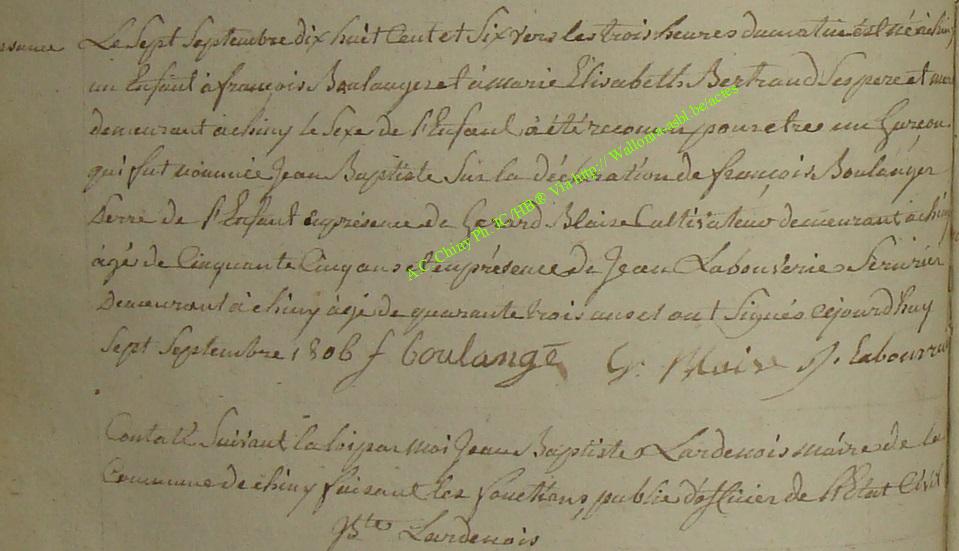 Le Sept Septembre dix huit Cent et Six vers les trois heures du matin est né a chiny
un Enfant a françois Boulanger et a marie Elisabeth Bertrand Ses pere et mere
demeurant a chiny le Sexe de l'Enfant a été reconnu pour etre un Garçon
qui fut nommée Jean Baptiste Sur la déclaration de françois Boulanger
Perre de l'Enfant en présence de Gerard Blaise Cultivateur demeurant a chiny
agé de Cinquante Cinq ans et en présence de Jean Labouverie Serurier
Demeurant a chiny agé de quarante trois ans et ont Signés cejourd'huy
Sept Septembre 1806 f boulangé G. Blaise J. labouverie
Contatė Suivant la loi par moi Jean Baptiste Lardenois maire de la
Commune de chiny faisant les fonctions public d'officier de l'Etat Civil
JBte Lardenois
A.C Chiny Ph. JC/HB® Via http:// Wallonia-asbl.be/actes